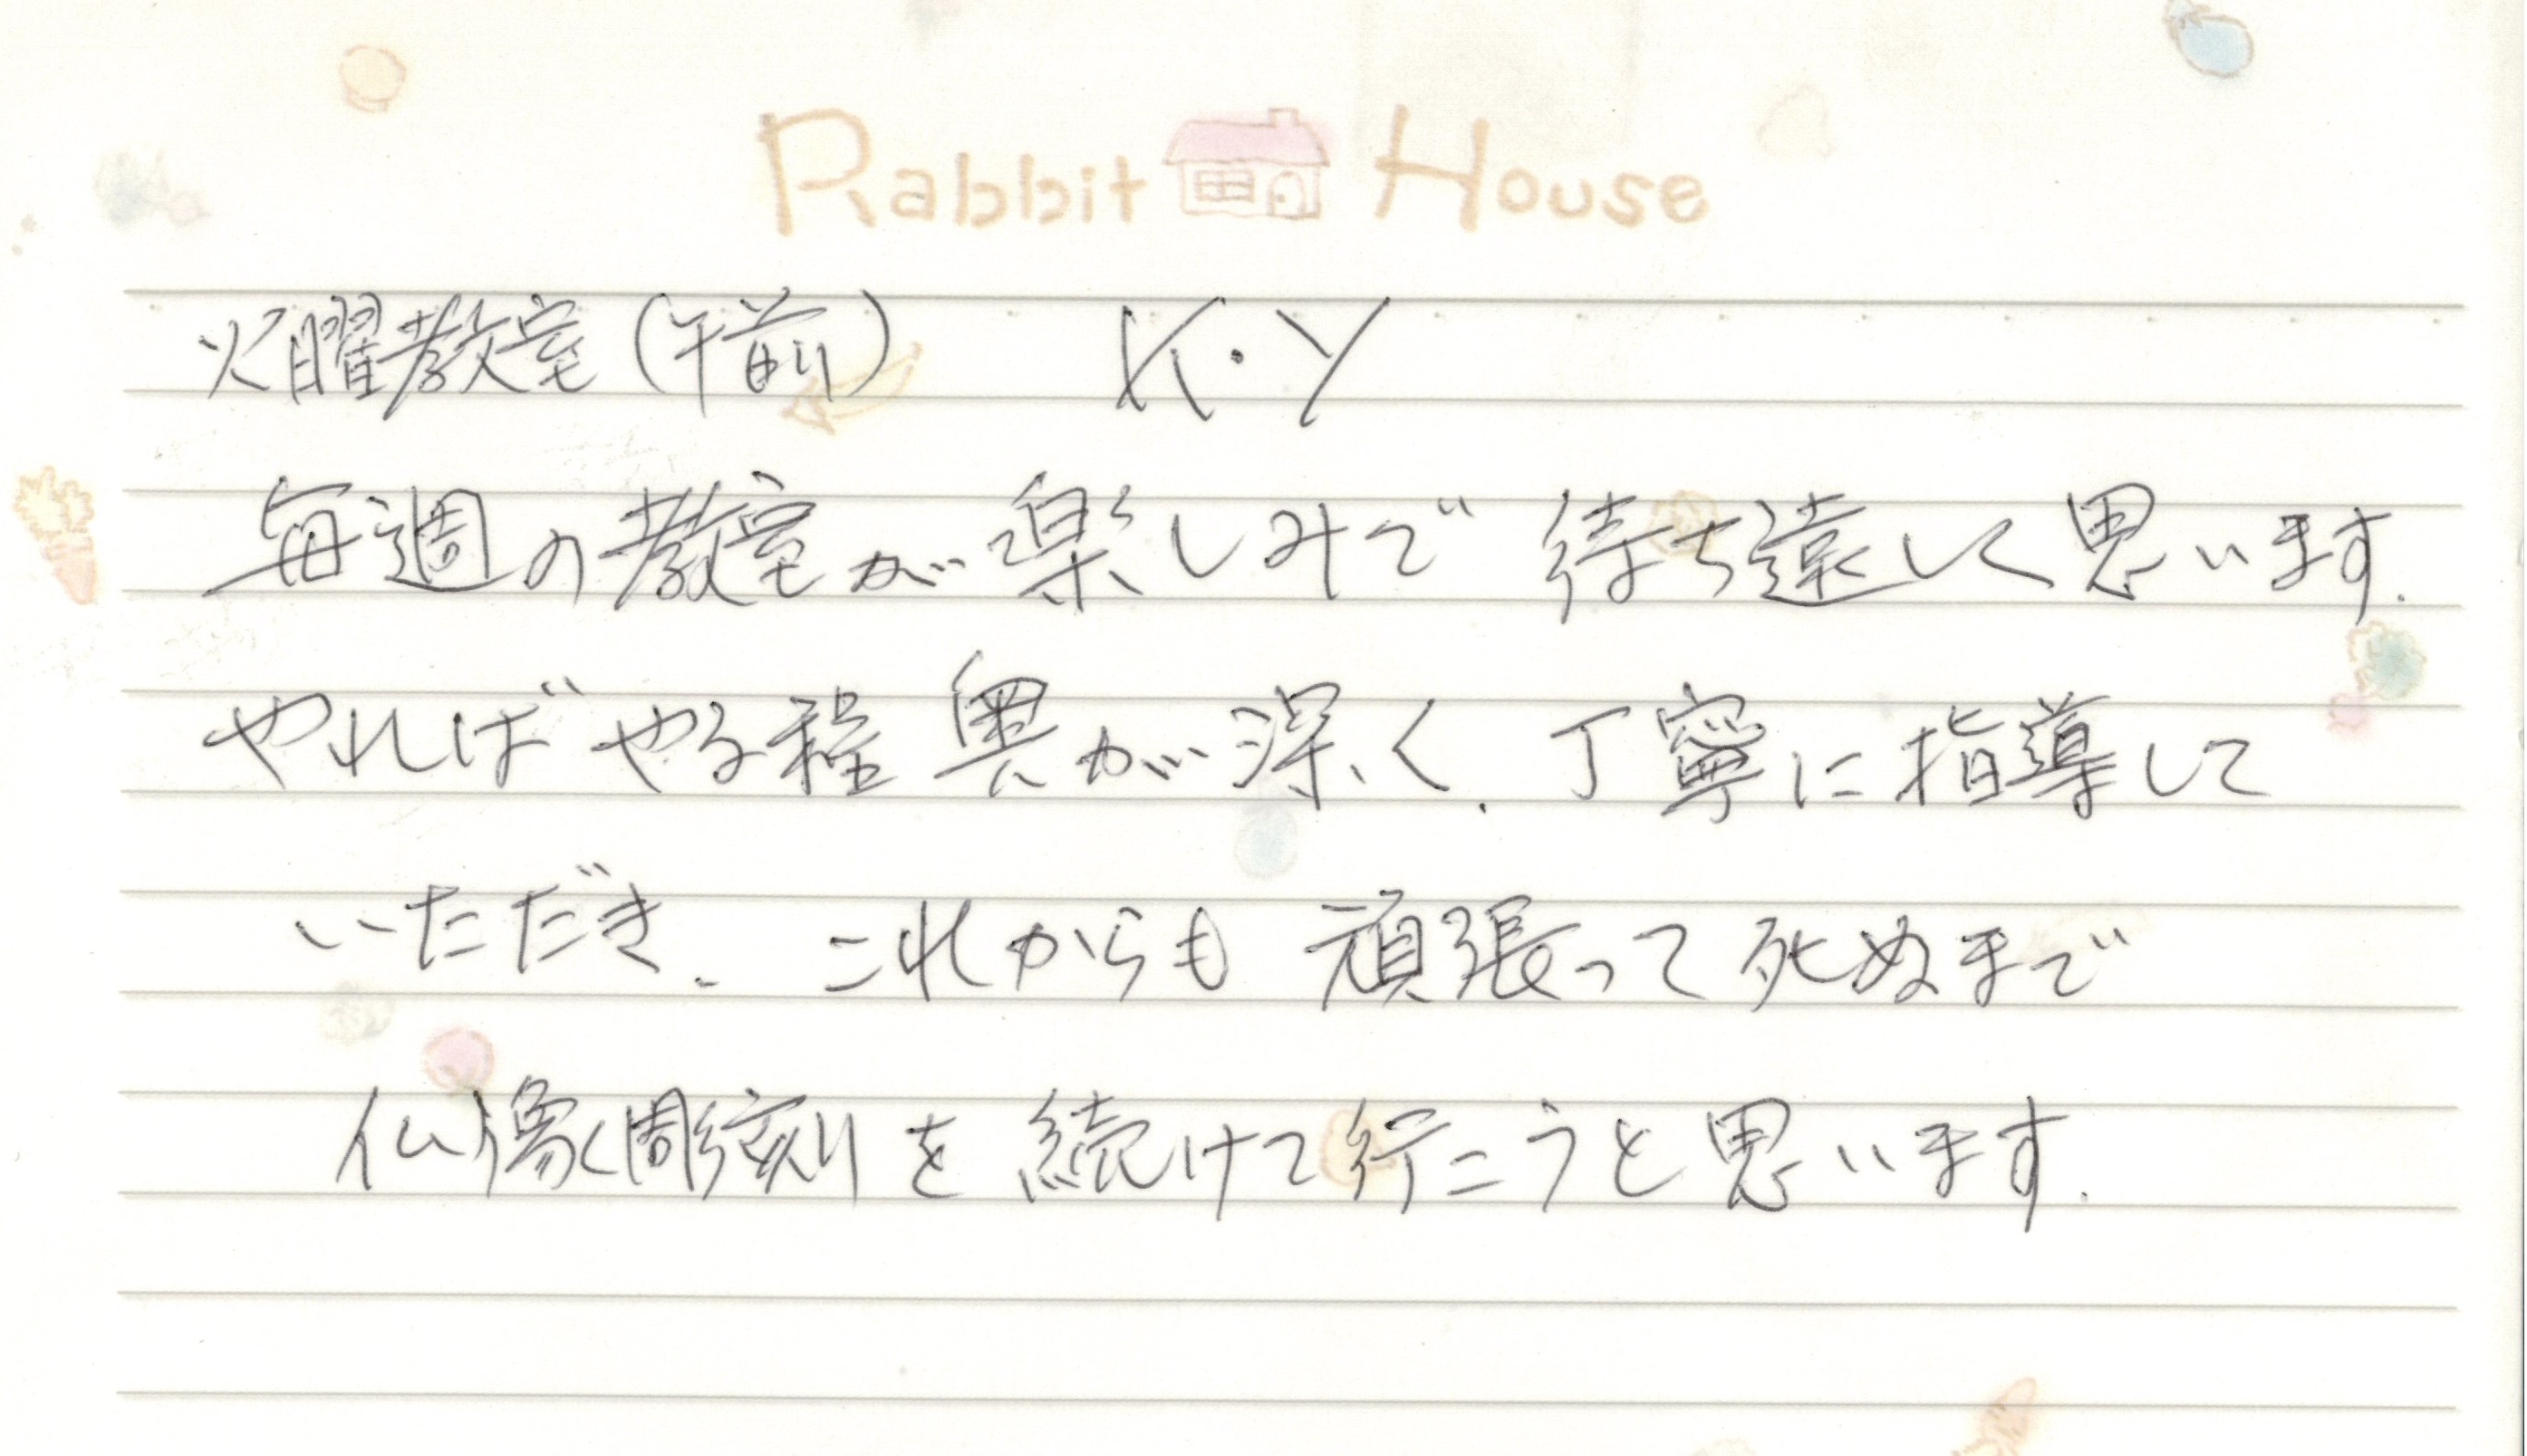 Rabbit House
火曜教室(午前) K・Y
毎週の教室が楽しみで 待ち遠しく思います.
やればやる程 奥が深く. 丁寧に指導して
いただき. これからも 頑張って死ぬまで
仏像彫刻を続けて行こうと思います.